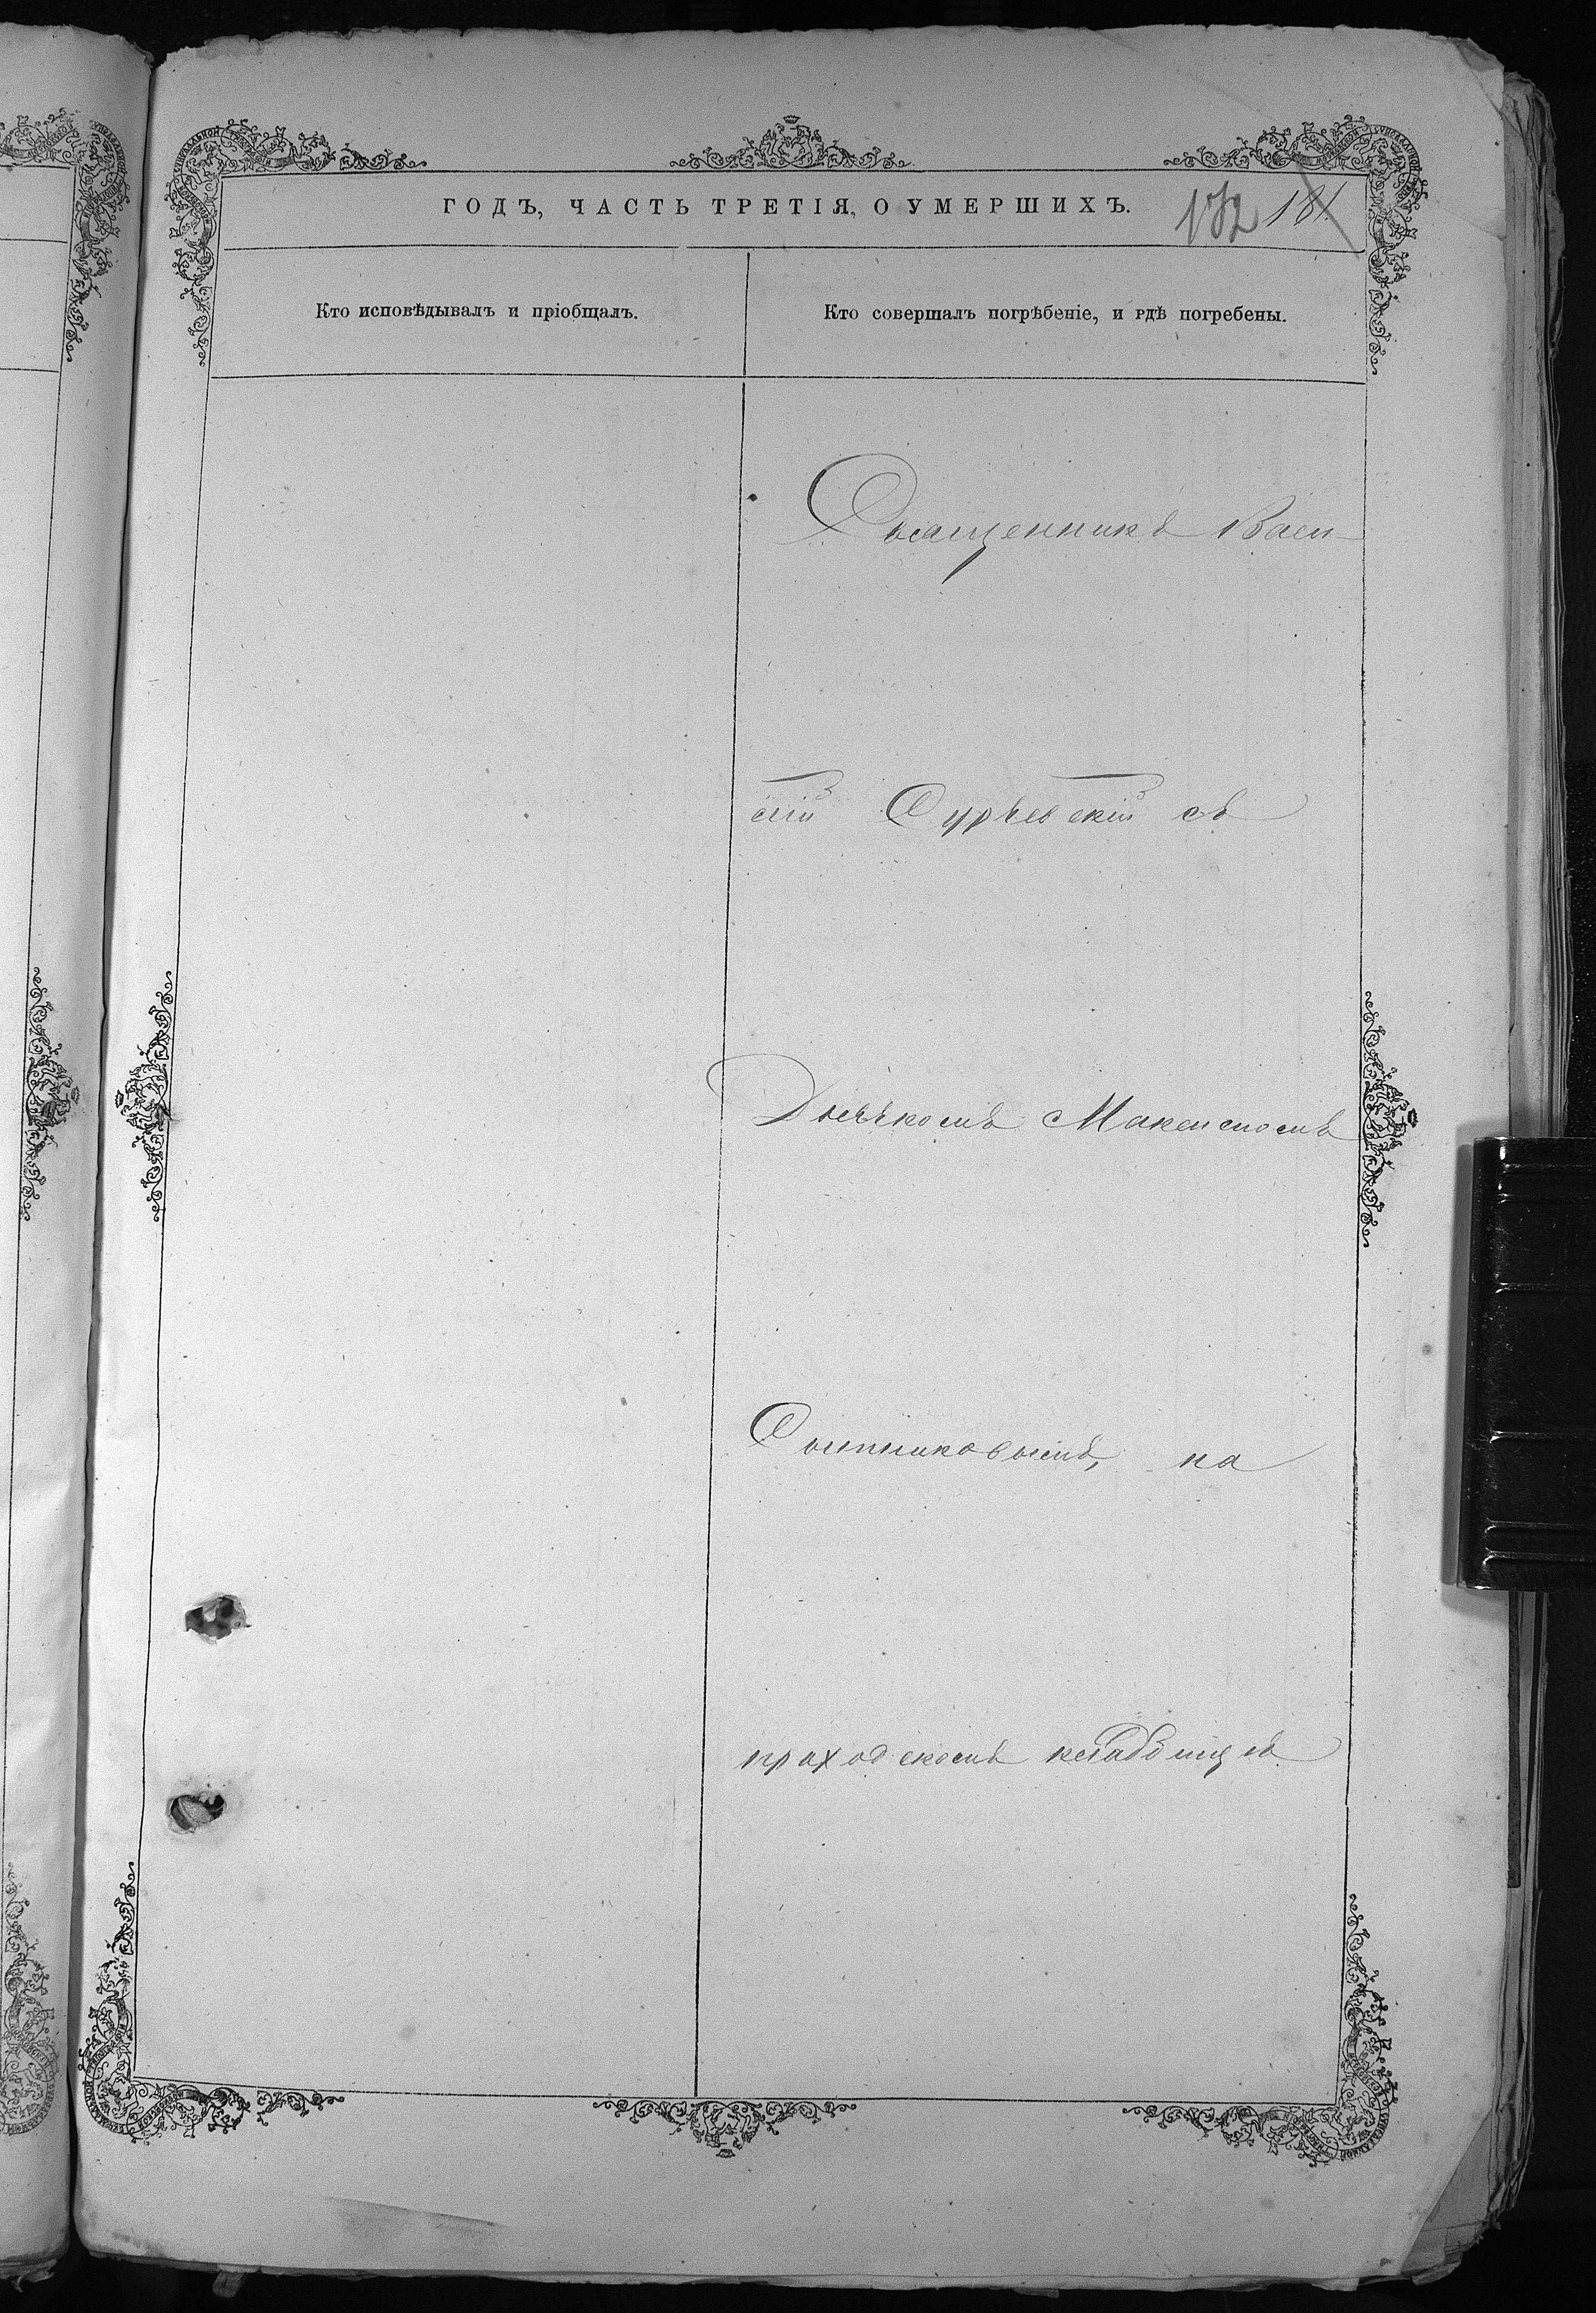 ГОДЪ, ЧАСТЬ ТРЕТІЯ, О УМЕРШИХЪ.
182 181
Кто исповѣдывалъ и пріобщалъ.
Кто совершалъ погрѣбеніе, и гдѣ погребены.
Священникъ Васи
лій Сурьевскій съ
Дьячкомъ Максимомъ
Сытниковымъ, на
приходскомъ кладбищѣ